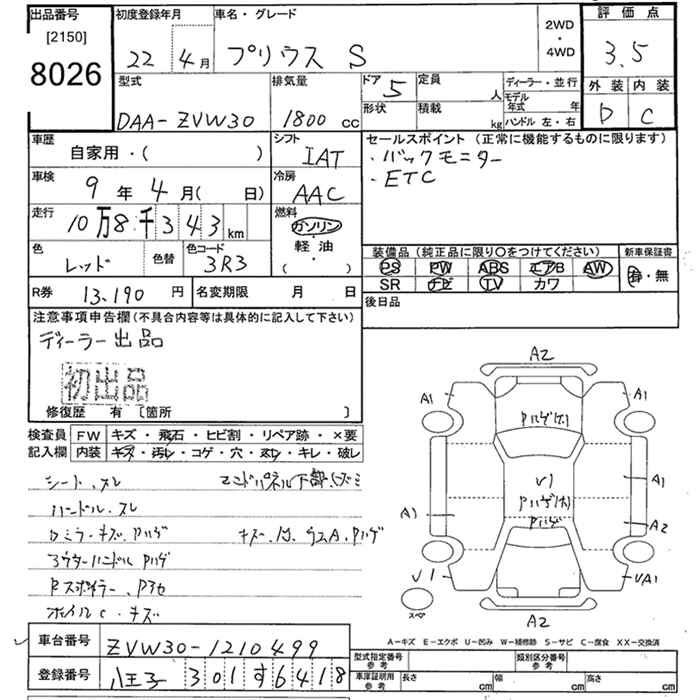 出品番号
[2150]
8026
初度登録年月
22年4月
車名・グレード
プリウス S
2WD
・
4WD
評価点
3.5
外装 内装
D C
型式
DAA-ZVW30
排気量
1800 cc
ドア 5
形状
定員 人
積載 kg
ディーラー・並行
モデル年式 年
ハンドル 左・右
車歴
自家用・( )
シフト
IAT
セールスポイント (正常に機能するものに限ります)
・バックモニター
・ETC
車検
9年4月( 日)
冷房
AAC
走行
10万8千343km
燃料
ガソリン
軽油
( )
色
レッド
色替
色コード
3R3
装備品 (純正品に限り○をつけてください)
PS PW ABS エアB AW
SR ナビ TV カワ
新車保証書
有・無
R券 13.190円
名変期限 月 日
後日品
注意事項申告欄(不具合内容等は具体的に記入して下さい)
ディーラー出品
初出品
修復歴 有 [箇所 ]
検査員 FW キズ・飛石・ヒビ割・リペア跡・×要
記入欄 内装 キズ・汚レ・コゲ・穴・スレ・キレ・破レ
シート、スレ
ハンドル、スレ
ドアミラーキズ、Pハゲ
アウターハンドルPハゲ
Rスポイラー、
ホイルC・キズ
A2
A1 A1
Pハゲ
V1
A1
Pハゲ
Pハゲ
A1
A2
V1 VA1
スペア
A2
A-キズ E-エクボ U-凹み W-補修跡 S-サビ C-腐食 XX-交換済
車台番号 ZVW30-1210499
登録番号 八王子 301す6418
型式指定番号 参考
類別区分番号 参考
車庫証明用 参考 長さ cm 幅 cm 高さ cm